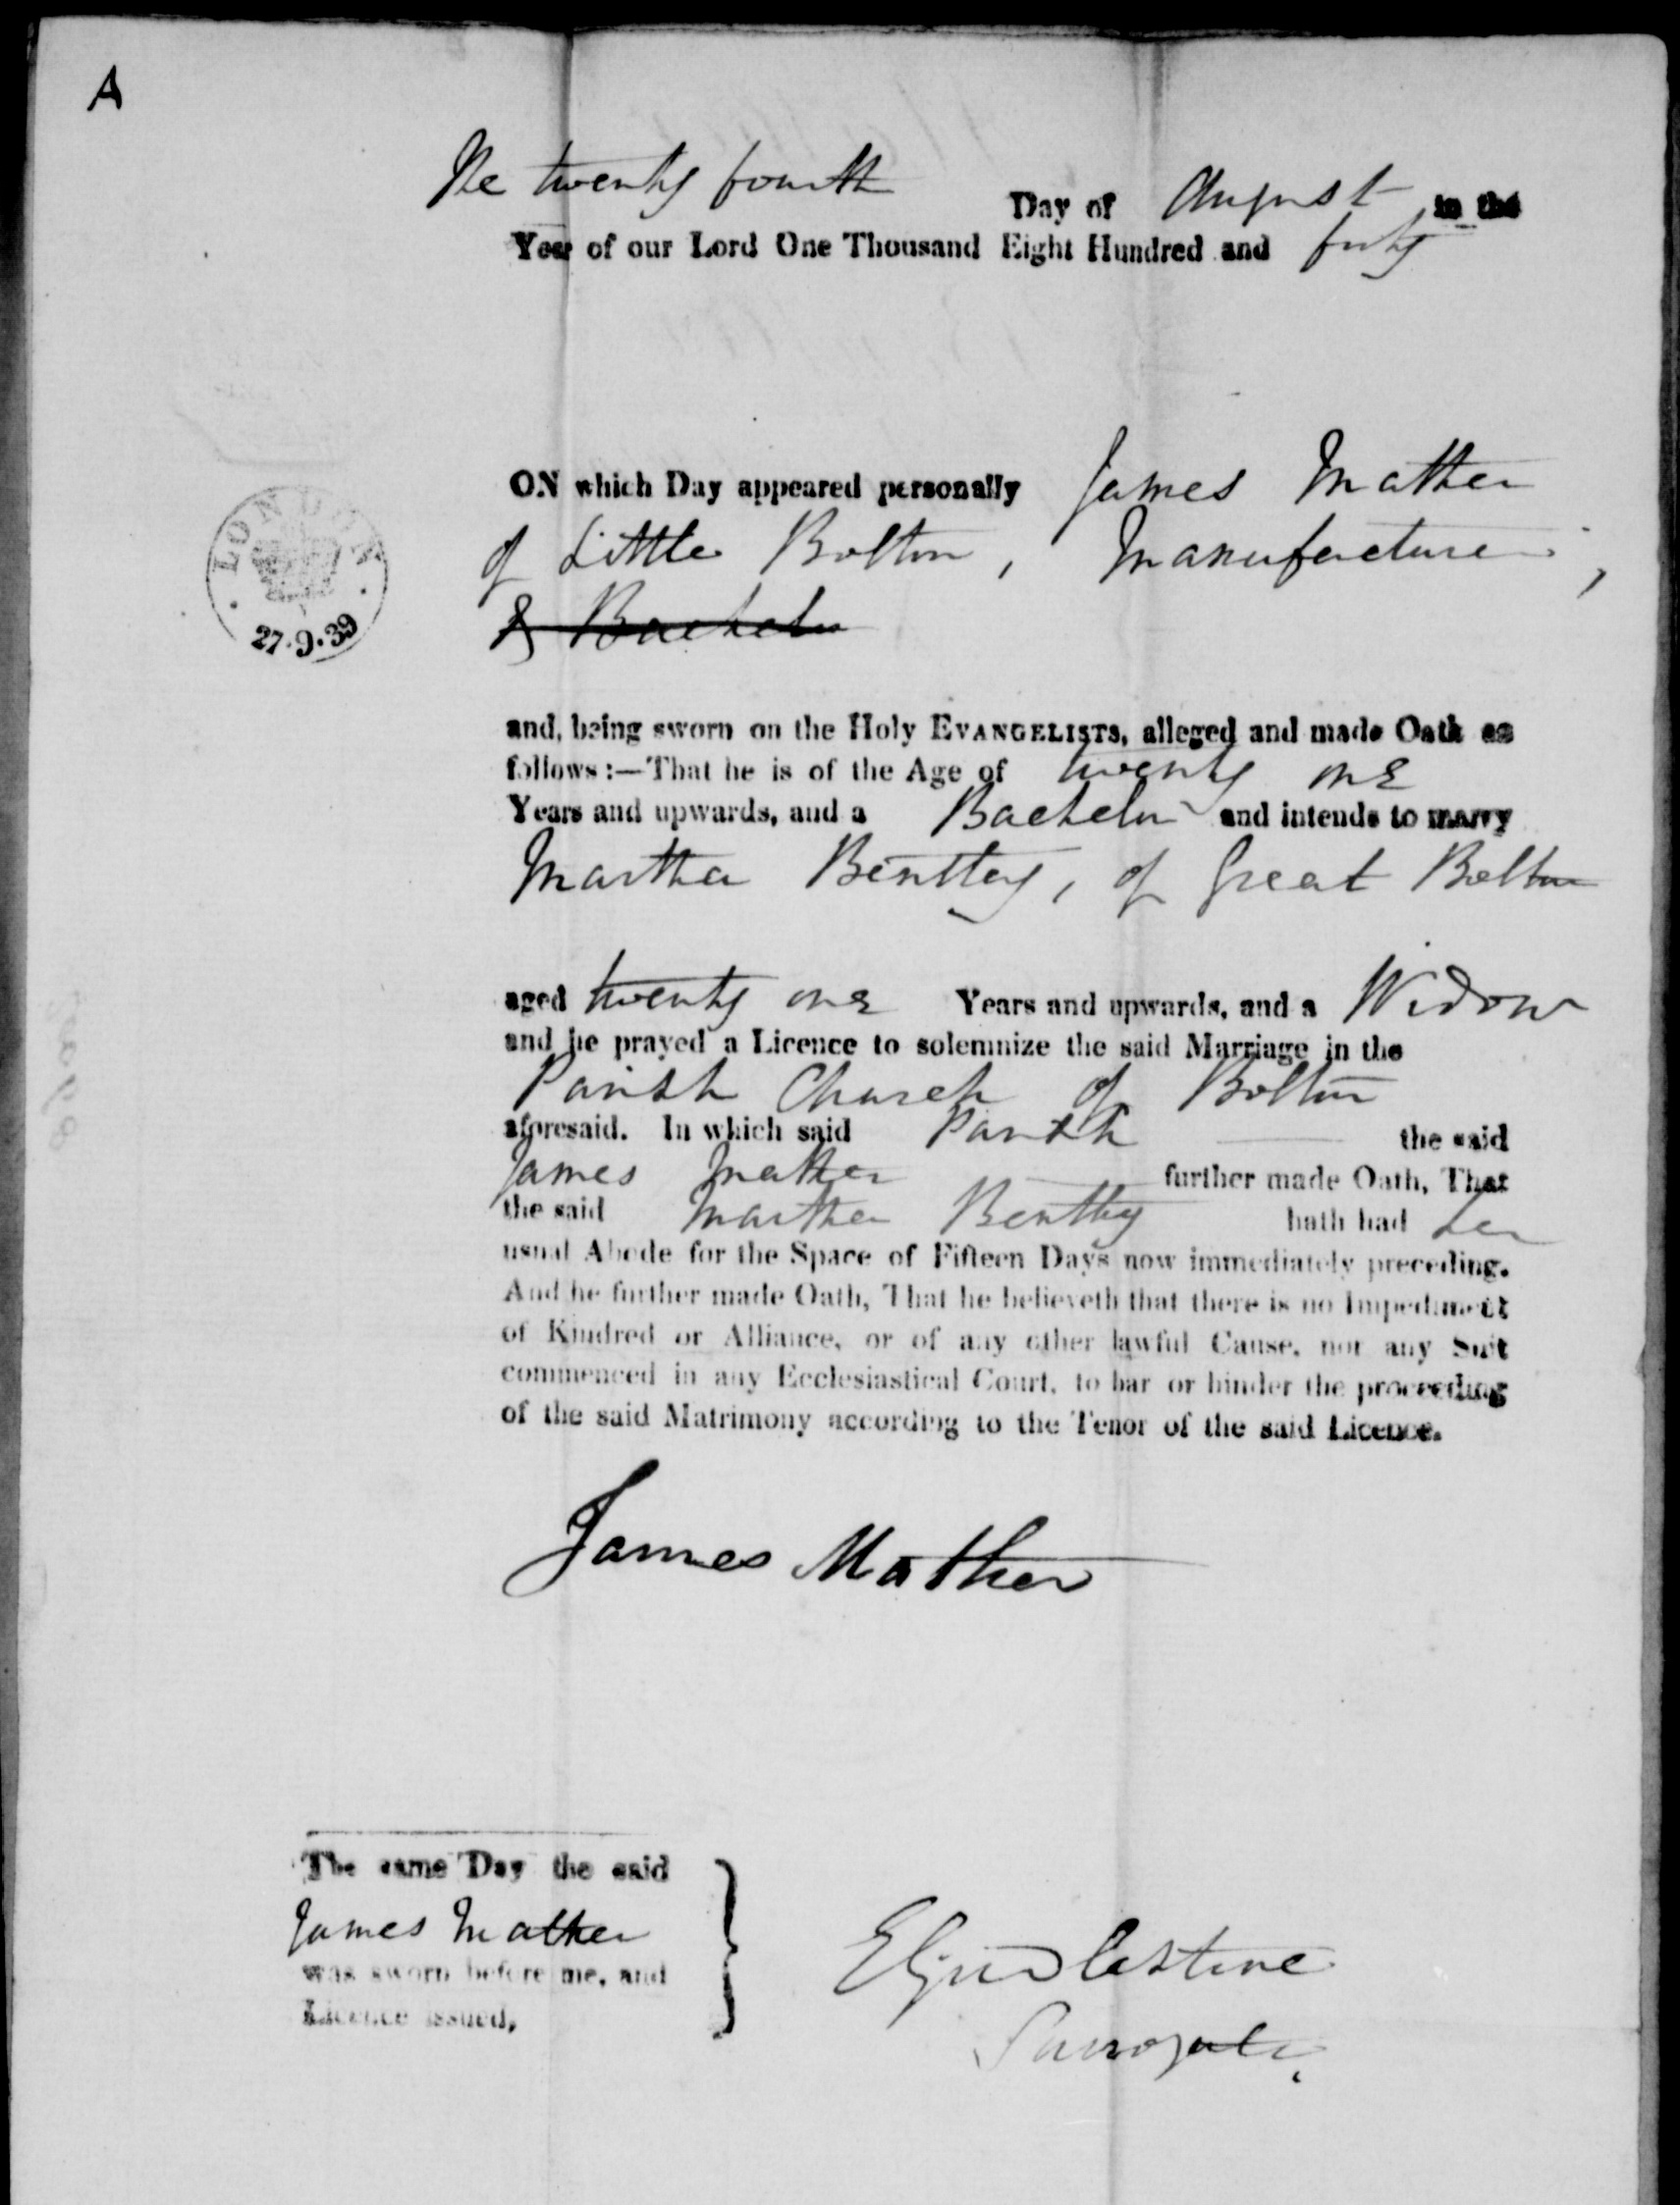 A
The twenty fourth Day of August in the
Year of our Lord One Thousand Eight Hundred and forty
ON which Day appeared personally James Mather
of Little Bolton, Manufacturer,
LONDON
27.9.39
& Bachelor
and, being sworn on the Holy EVANGELISTS, alleged and made Oath as
follows:—That he is of the Age of twenty one
Years and upwards, and a Bachelor and intends to marry
Martha Bentley, of Great Bolton
aged twenty one Years and upwards, and a Widow
and he prayed a Licence to solemnize the said Marriage in the
Parish Church of Bolton
aforesaid. In which said Parish the said
James Mather further made Oath, That
the said Martha Bentley hath had her
usual Abode for the Space of Fifteen Days now immediately preceding.
And he further made Oath, That he believeth that there is no Impediment
of Kindred or Alliance, or of any other lawful Cause, nor any Suit
commenced in any Ecclesiastical Court, to bar or hinder the proceeding
of the said Matrimony according to the Tenor of the said Licence.
James Mather
The same Day the said
James Mather
was sworn before me, and
Licence issued,
Surrogate.